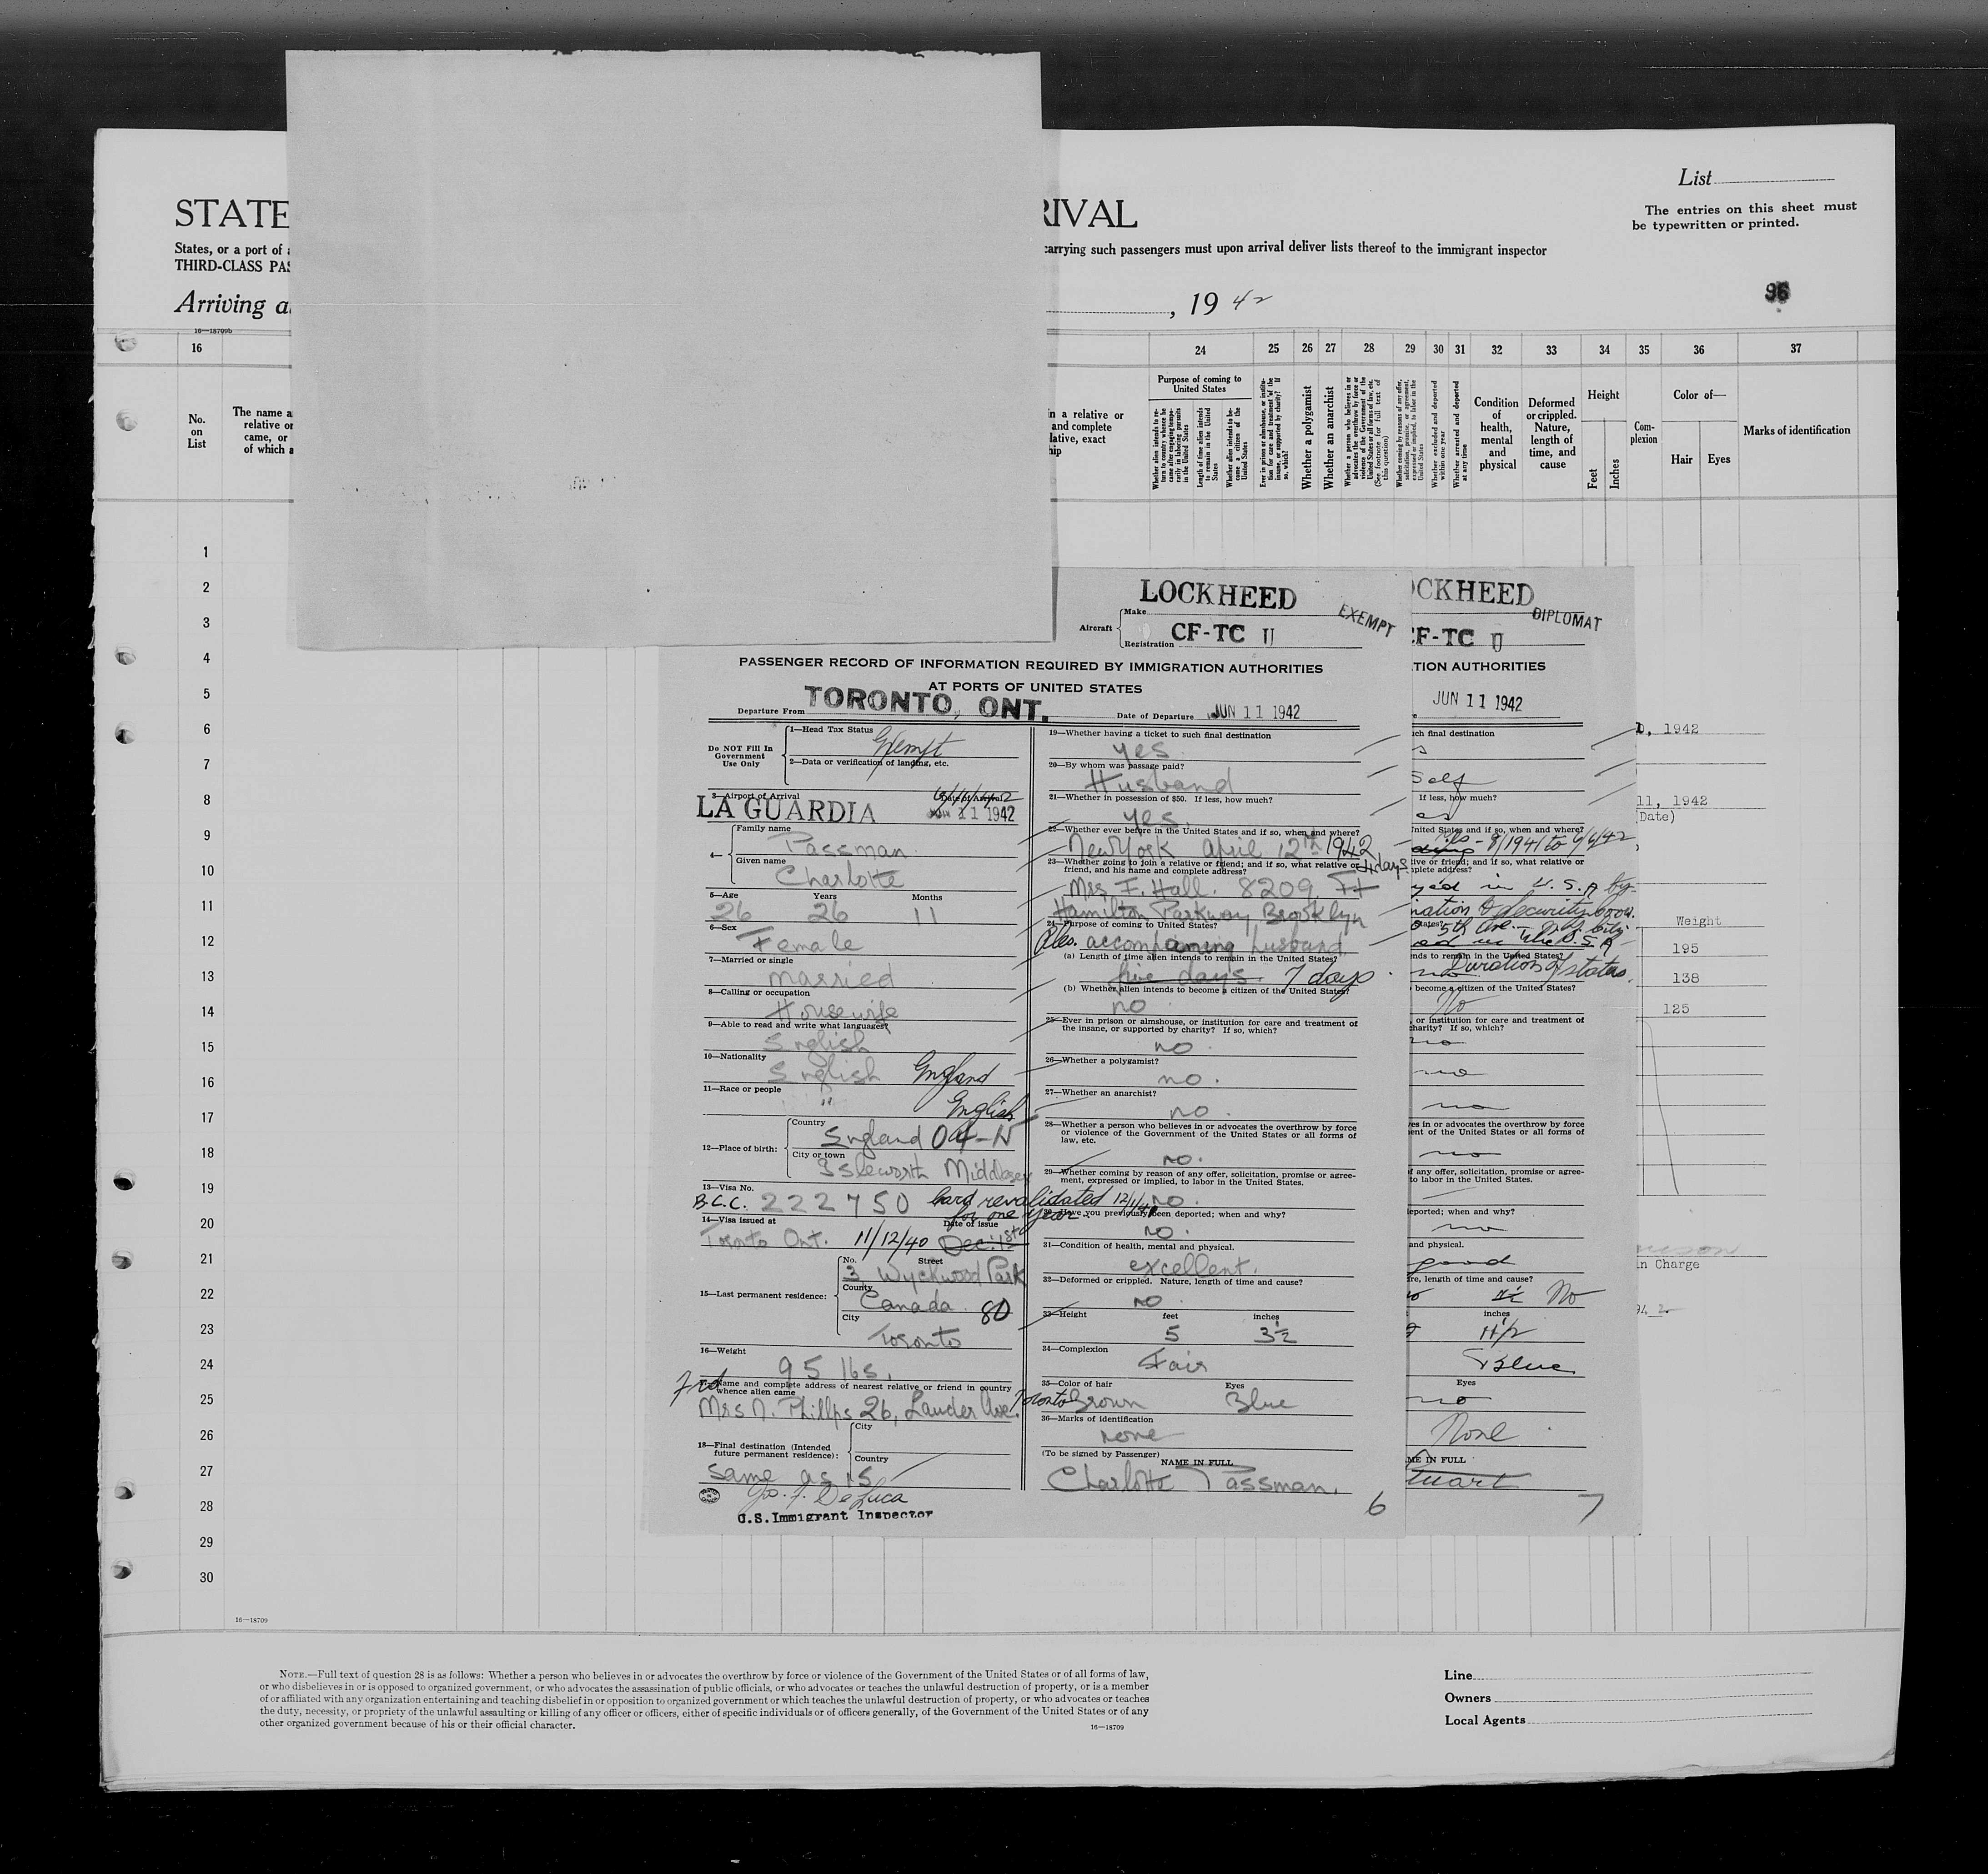 List
The entries on this sheet must
be typewritten or printed.
STATE
RIVAL
States, or a port of
carrying such passengers must upon arrival deliver lists thereof to the immigrant inspector
THIRD-CLASS PAS
Arriving a
, 19 42
96
16—18709b
16
24 25 26 27 28 29 30 31 32 33 34 35 36 37
No.
on
List
The name a
relative or
came, or
of which a
in a relative or
and complete
lative, exact
hip
Purpose of coming to
United States
Whether a polygamist
Whether an anarchist
Condition
of
health,
mental
and
physical
Deformed
or crippled.
Nature,
length of
time, and
cause
Height
Feet
Inches
Com-
plexion
Color of—
Hair
Eyes
Marks of identification
1
2
3
4
5
6
7
8
9
10
11
12
13
14
15
16
17
18
19
20
21
22
23
24
25
26
27
28
29
30
LOCKHEED
Make
Aircraft
Registration CF-TC U
EXEMPT
PASSENGER RECORD OF INFORMATION REQUIRED BY IMMIGRATION AUTHORITIES
AT PORTS OF UNITED STATES
Departure From TORONTO, ONT.
Date of Departure JUN 11 1942
Do NOT Fill In
Government
Use Only
1—Head Tax Status
Exempt
2—Data or verification of landing, etc.
3—Airport of Arrival
Date of Arrival
LA GUARDIA
JUN 11 1942
4—
Family name
Passman
Given name
Charlotte
5—Age Years Months
26 26 11
6—Sex
Female
7—Married or single
married
8—Calling or occupation
Housewife
9—Able to read and write what languages?
English
10—Nationality
English England
11—Race or people
" English
12—Place of birth:
Country
England 04-N
City or town
Isleworth Middlesex
13—Visa No.
B.C.C. 222750 Card revalidated 12/1/41
for one year.
14—Visa issued at Date of issue
Toronto Ont. 11/12/40 Dec. 1st
15—Last permanent residence:
No. Street
3 Wychwood Park
County
Canada 80
City
Toronto
16—Weight
95 lbs.
17—Name and complete address of nearest relative or friend in country
whence alien came
Mrs N. Phillps 26, Lauder Ave. Toronto
18—Final destination (Intended
future permanent residence):
City
Country
same as 15
Jos. F. DeLuca
U.S. Immigrant Inspector
19—Whether having a ticket to such final destination
yes
20—By whom was passage paid?
Husband
21—Whether in possession of $50. If less, how much?
yes.
22—Whether ever before in the United States and if so, when and where?
New York april 12th 1942
4 days
23—Whether going to join a relative or friend; and if so, what relative or
friend, and his name and complete address?
Mrs F. Hall. 8209. Ft
Hamilton Parkway Brooklyn
24—Purpose of coming to United States?
accompaning husband
(a) Length of time alien intends to remain in the United States?
five days. 7 days
(b) Whether alien intends to become a citizen of the United States?
no
25—Ever in prison or almshouse, or institution for care and treatment of
the insane, or supported by charity? If so, which?
no.
26—Whether a polygamist?
no.
27—Whether an anarchist?
no.
28—Whether a person who believes in or advocates the overthrow by force
or violence of the Government of the United States or all forms of
law, etc.
no.
29—Whether coming by reason of any offer, solicitation, promise or agree-
ment, expressed or implied, to labor in the United States.
no.
30—Have you previously been deported; when and why?
no.
31—Condition of health, mental and physical.
excellent.
32—Deformed or crippled. Nature, length of time and cause?
no
33—Height feet inches
5 3½
34—Complexion
Fair
35—Color of hair Eyes
Brown Blue
36—Marks of identification
none
(To be signed by Passenger)
NAME IN FULL
Charlotte Passman.
6
OCKHEED
DIPLOMAT
CF-TC U
TION AUTHORITIES
JUN 11 1942
ch final destination
Self
If less, how much?
United States and if so, when and where?
8/1941 to 6/6/42
tive or friend; and if so, what relative or
plete address?
in U.S.A by
nds to remain in the United States?
Duration of status.
become a citizen of the United States?
No
or institution for care and treatment of
charity? If so, which?
no
no
no
ves in or advocates the overthrow by force
ent of the United States or all forms of
no
f any offer, solicitation, promise or agree-
to labor in the United States.
deported; when and why?
no
and physical.
good
re, length of time and cause?
No
inches
11½
Blue
Eyes
no
None
ME IN FULL
tuart
7
, 1942
11, 1942
(Date)
Weight
195
138
125
in Charge
16—18709
NOTE.—Full text of question 28 is as follows: Whether a person who believes in or advocates the overthrow by force or violence of the Government of the United States or of all forms of law,
or who disbelieves in or is opposed to organized government, or who advocates the assassination of public officials, or who advocates or teaches the unlawful destruction of property, or is a member
of or affiliated with any organization entertaining and teaching disbelief in or opposition to organized government or which teaches the unlawful destruction of property, or who advocates or teaches
the duty, necessity, or propriety of the unlawful assaulting or killing of any officer or officers, either of specific individuals or of officers generally, of the Government of the United States or of any
other organized government because of his or their official character.
16—18709
Line
Owners
Local Agents